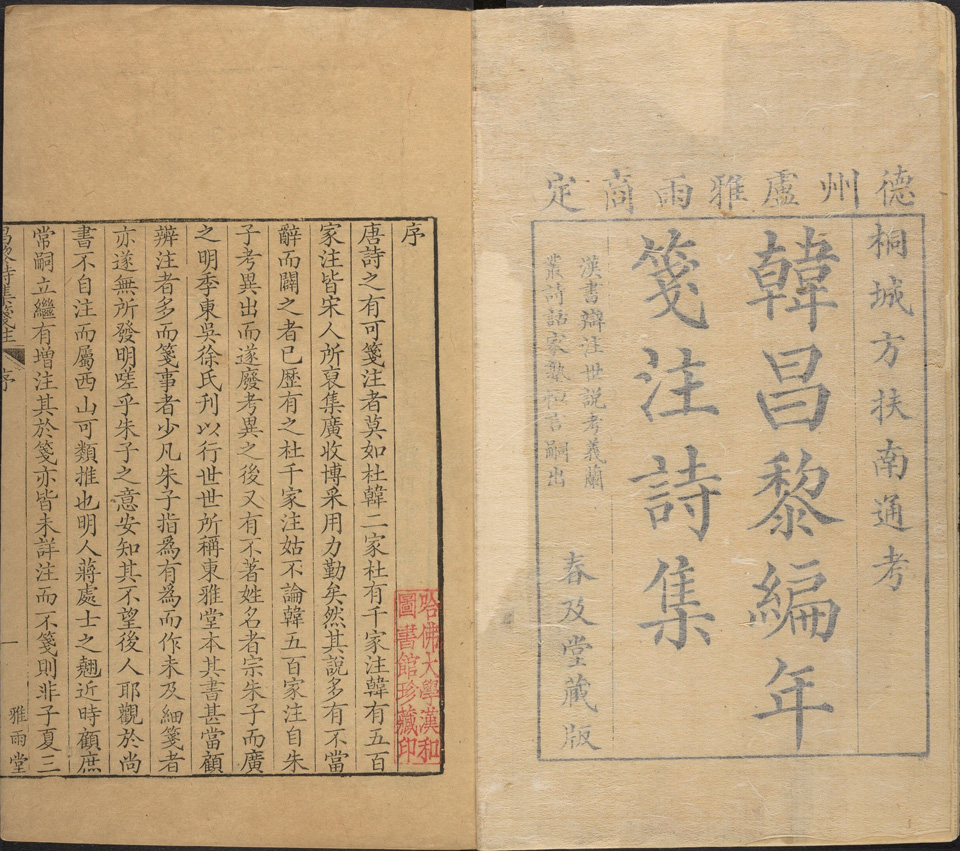 德州盧雅雨商定
桐城方扶南通考
韓昌黎編年
箋注詩集
漢書辯注世說考義蘭
叢詩話家塾恒言嗣出
春及堂藏版
序
唐詩之有可箋注者莫如杜韓二家杜有千家注韓有五百
家注皆宋人所裒集廣收博采用力勤矣然其說多有不當
辭而闢之者已歷有之杜千家注姑不論韓五百家注自朱
子考異出而遂廢考異之後又有不著姓名者宗朱子而廣
之明季東吳徐氏刊以行世世所稱東雅堂本其書甚當顧
辨注者多而箋事者少凡朱子指為有為而作未及細箋者
亦遂無所發明嗟乎朱子之意安知其不望後人耶觀於尚
書不自注而屬西山可類推也明人蔣處士之翹近時顧庶
常嗣立繼有增注其於箋亦皆未詳注而不箋則非子夏三
昌黎詩集箋注
序
一
雅雨堂
哈佛大學漢和
圖書館珍藏印